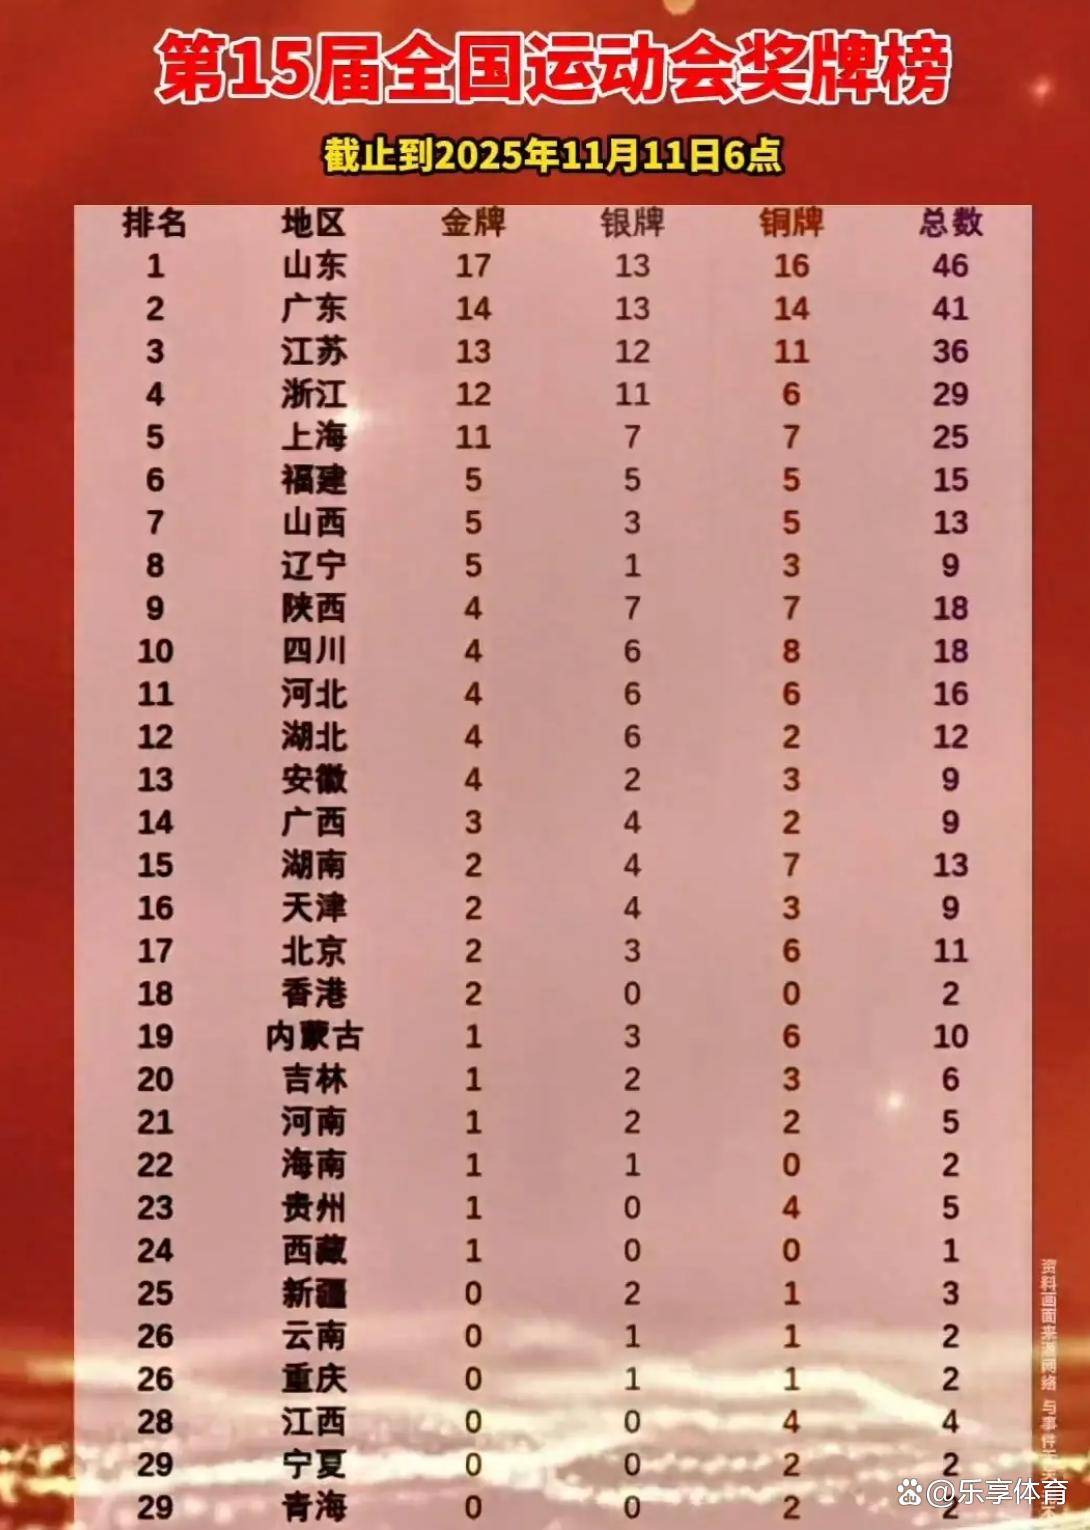 第15届全国运动会奖牌榜
截止到2025年11月11日6点
排名 地区 金牌 银牌 铜牌 总数
1 山东 17 13 16 46
2 广东 14 13 14 41
3 江苏 13 12 11 36
4 浙江 12 11 6 29
5 上海 11 7 7 25
6 福建 5 5 5 15
7 山西 5 3 5 13
8 辽宁 5 1 3 9
9 陕西 4 7 7 18
10 四川 4 6 8 18
11 河北 4 6 6 16
12 湖北 4 6 2 12
13 安徽 4 2 3 9
14 广西 3 4 2 9
15 湖南 2 4 7 13
16 天津 2 4 3 9
17 北京 2 3 6 11
18 香港 2 0 0 2
19 内蒙古 1 3 6 10
20 吉林 1 2 3 6
21 河南 1 2 2 5
22 海南 1 1 0 2
23 贵州 1 0 4 5
24 西藏 1 0 0 1
25 新疆 0 2 1 3
26 云南 0 1 1 2
26 重庆 0 1 1 2
28 江西 0 0 4 4
29 宁夏 0 0 2 2
29 青海 0 0 2 2
资料画面来源网络 与事件
@乐享体育